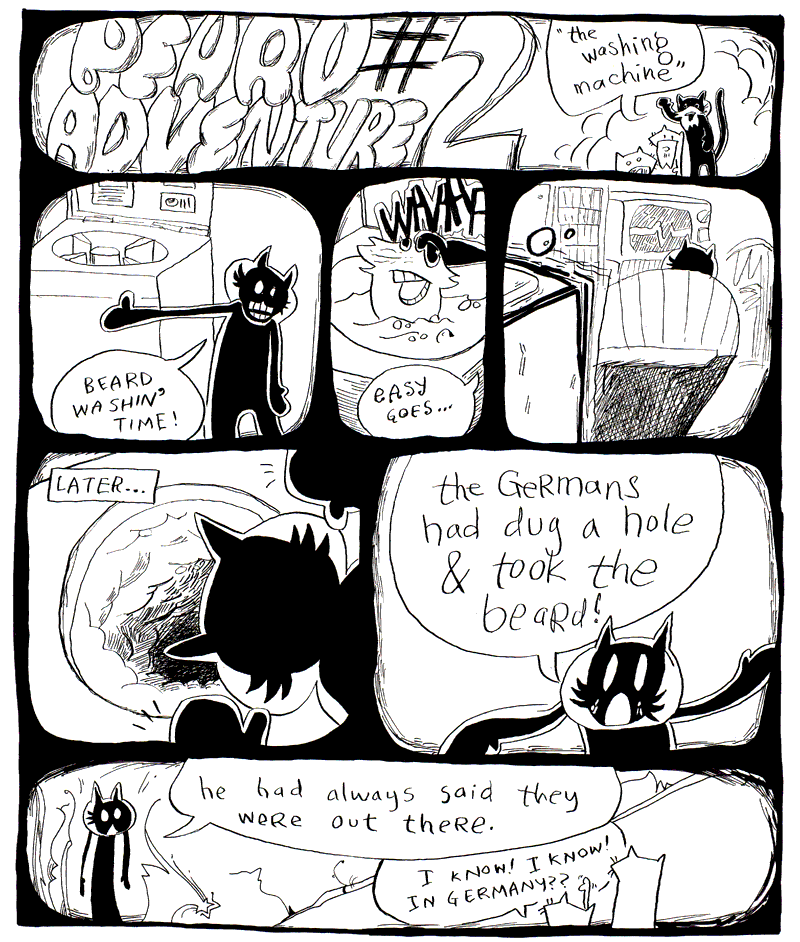 BEARD #2
ADVENTURE
"the
washing
machine"
BEARD
WASHIN'
TIME!
WAHH
EASY
GOES...
LATER...
the GeRmans
had dug a hole
& took the
beaRd!
he had always said they
weRe out theRe.
I KNOW! I KNOW!
IN GERMANY??